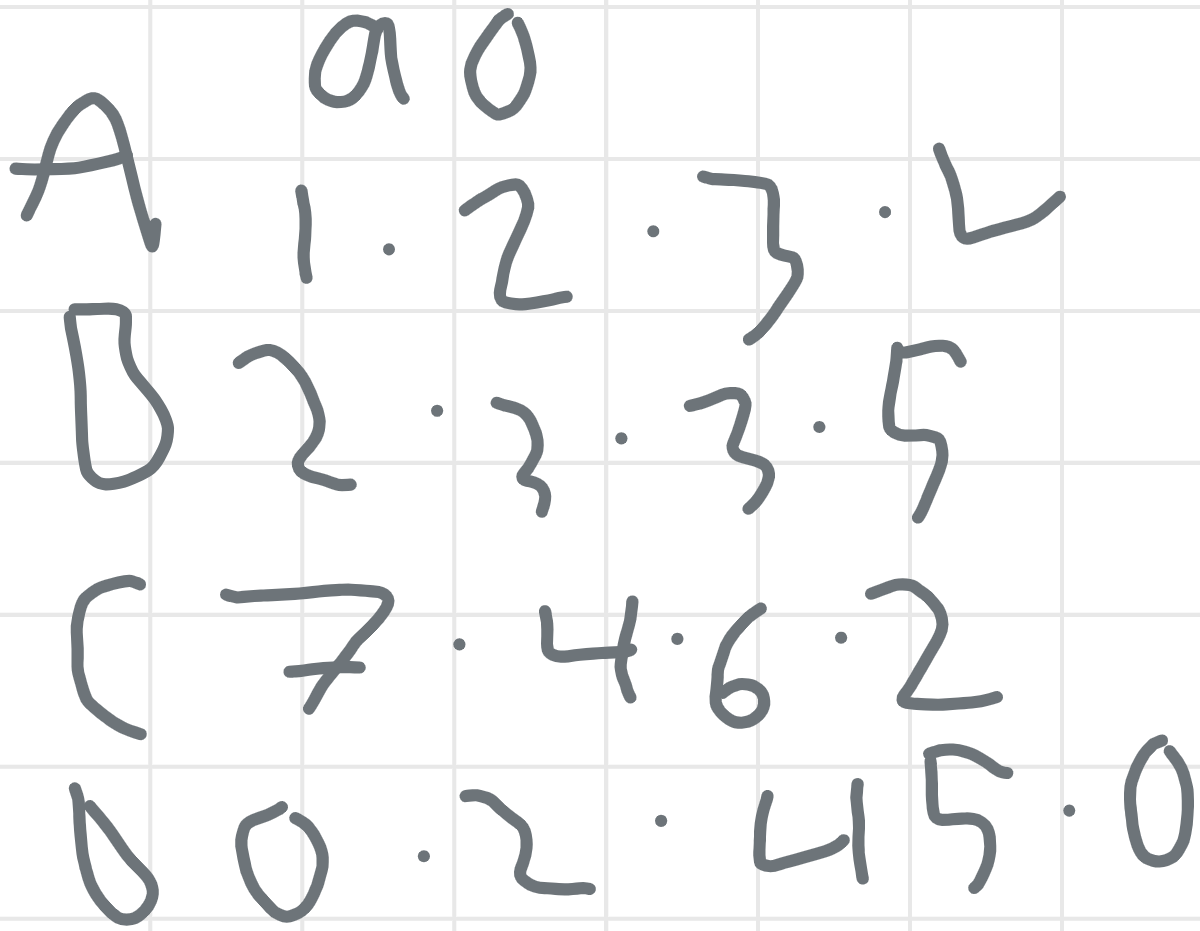 a 0
A 1 . 2 . 3 .
B 2 . 3 . 3 . 5
C 7 . 4 . 6 . 2
D 0 . 2 . 45 . 0